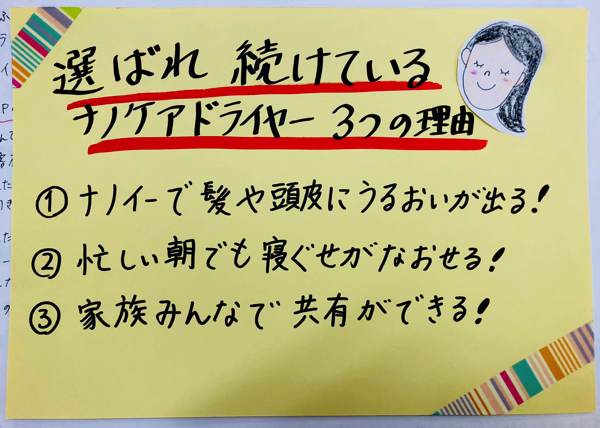 選ばれ続けている
ナノケアドライヤー 3つの理由
① ナノイーで髪や頭皮にうるおいが出る!
② 忙しい朝でも寝ぐせがなおせる!
③ 家族みんなで共有ができる!